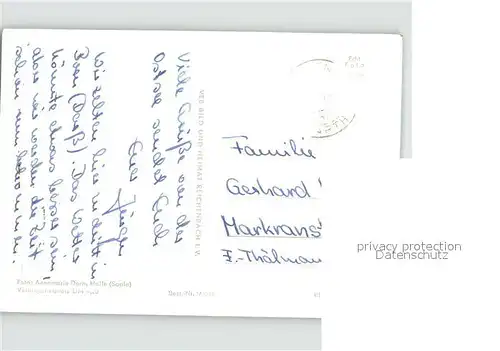 Viele Grüße von der
Ostsee sendet Euch
Euer Jürgen
Wir zelten hier in
Born (Darß). Das Wetter
könnte etwas besser sein,
aber wir werden die Zeit
schon
VEB BILD UND HEIMAT REICHENBACH I. V.
Familie
Gerhard
Markrans
E.-Thälman
privacy protection
Datenschutz
Foto: Annemarie Dorn, Halle (Saale)
Best.-Nr.